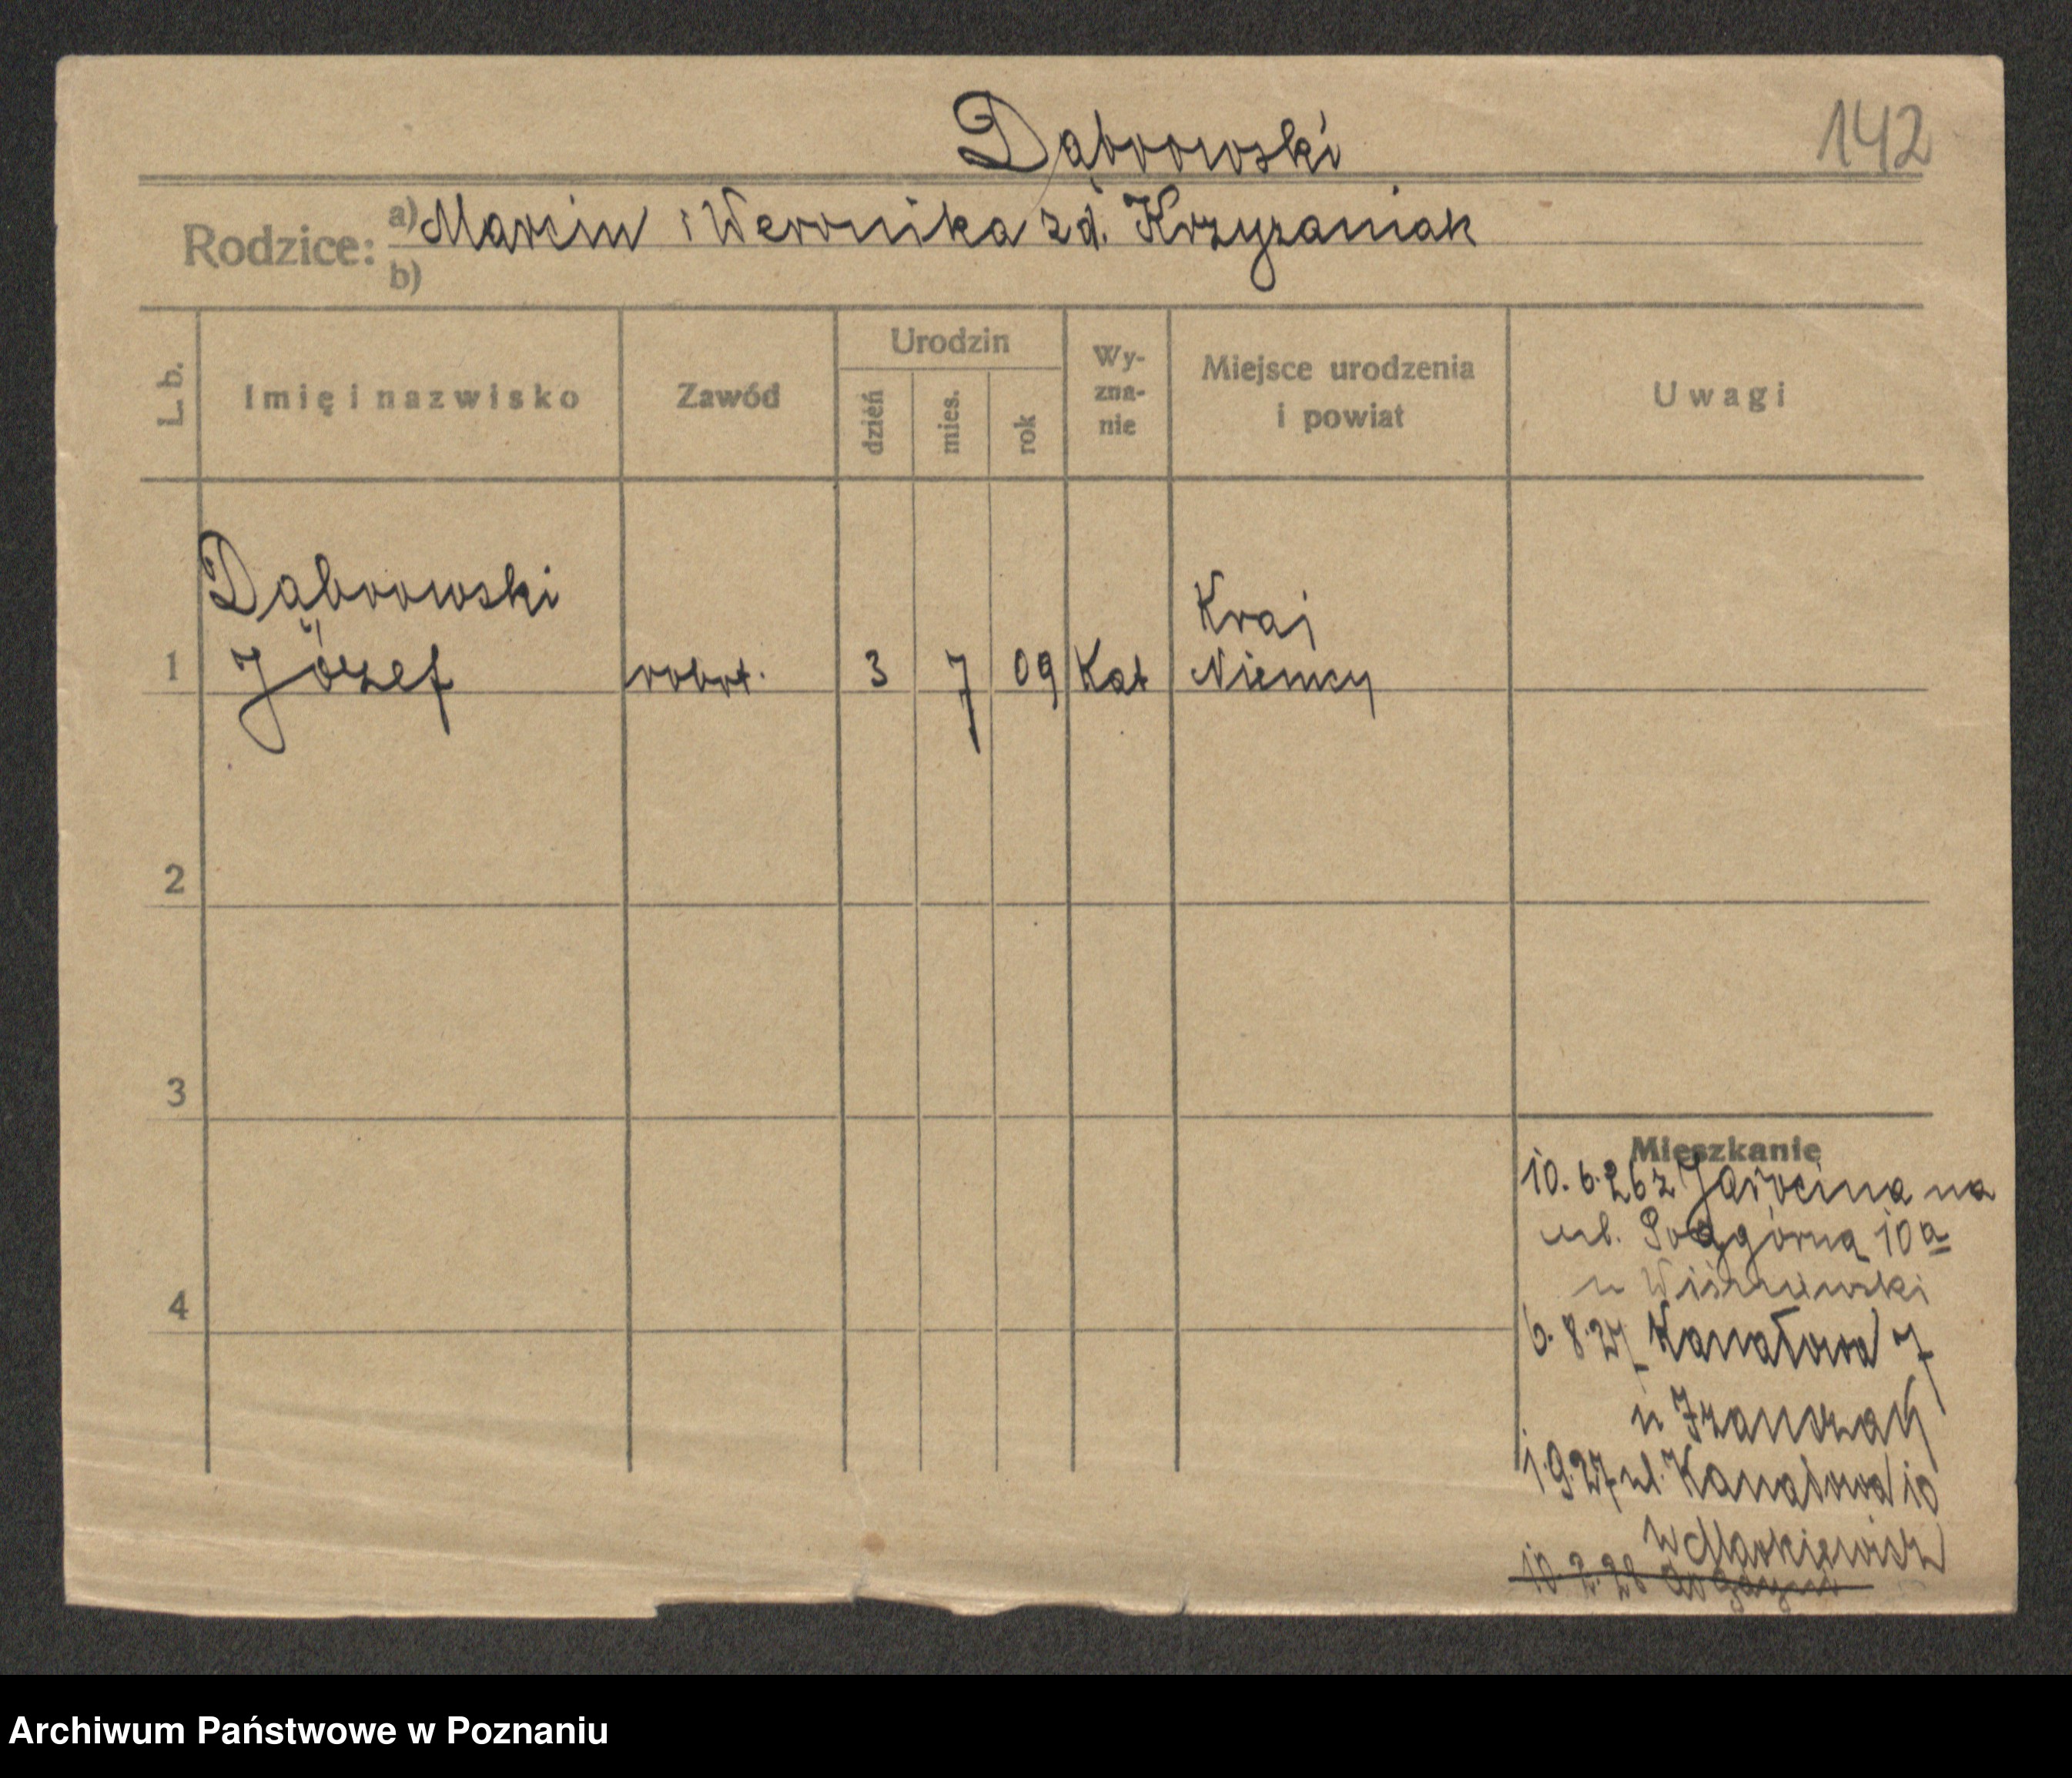 Dąbrowski
142
Rodzice: a) Marcin i Weronika zd. Krzyzaniak
b)
L. b.
Imię i nazwisko
Zawód
Urodzin
dzień
mies.
rok
Wy-
zna-
nie
Miejsce urodzenia
i powiat
Uwagi
Dąbrowski
Kraj
1 Józef robot. 3 7 09 Kat Niemcy
2
3
4
Mieszkanie
10.6.26 z Jarocina na
ul. Podgórną 10a
u Wiśniewski
6.8.27 Kanałowa 7
u
1.9.27 ul. Kanałowa 10
10.2.28
Archiwum Państwowe w Poznaniu